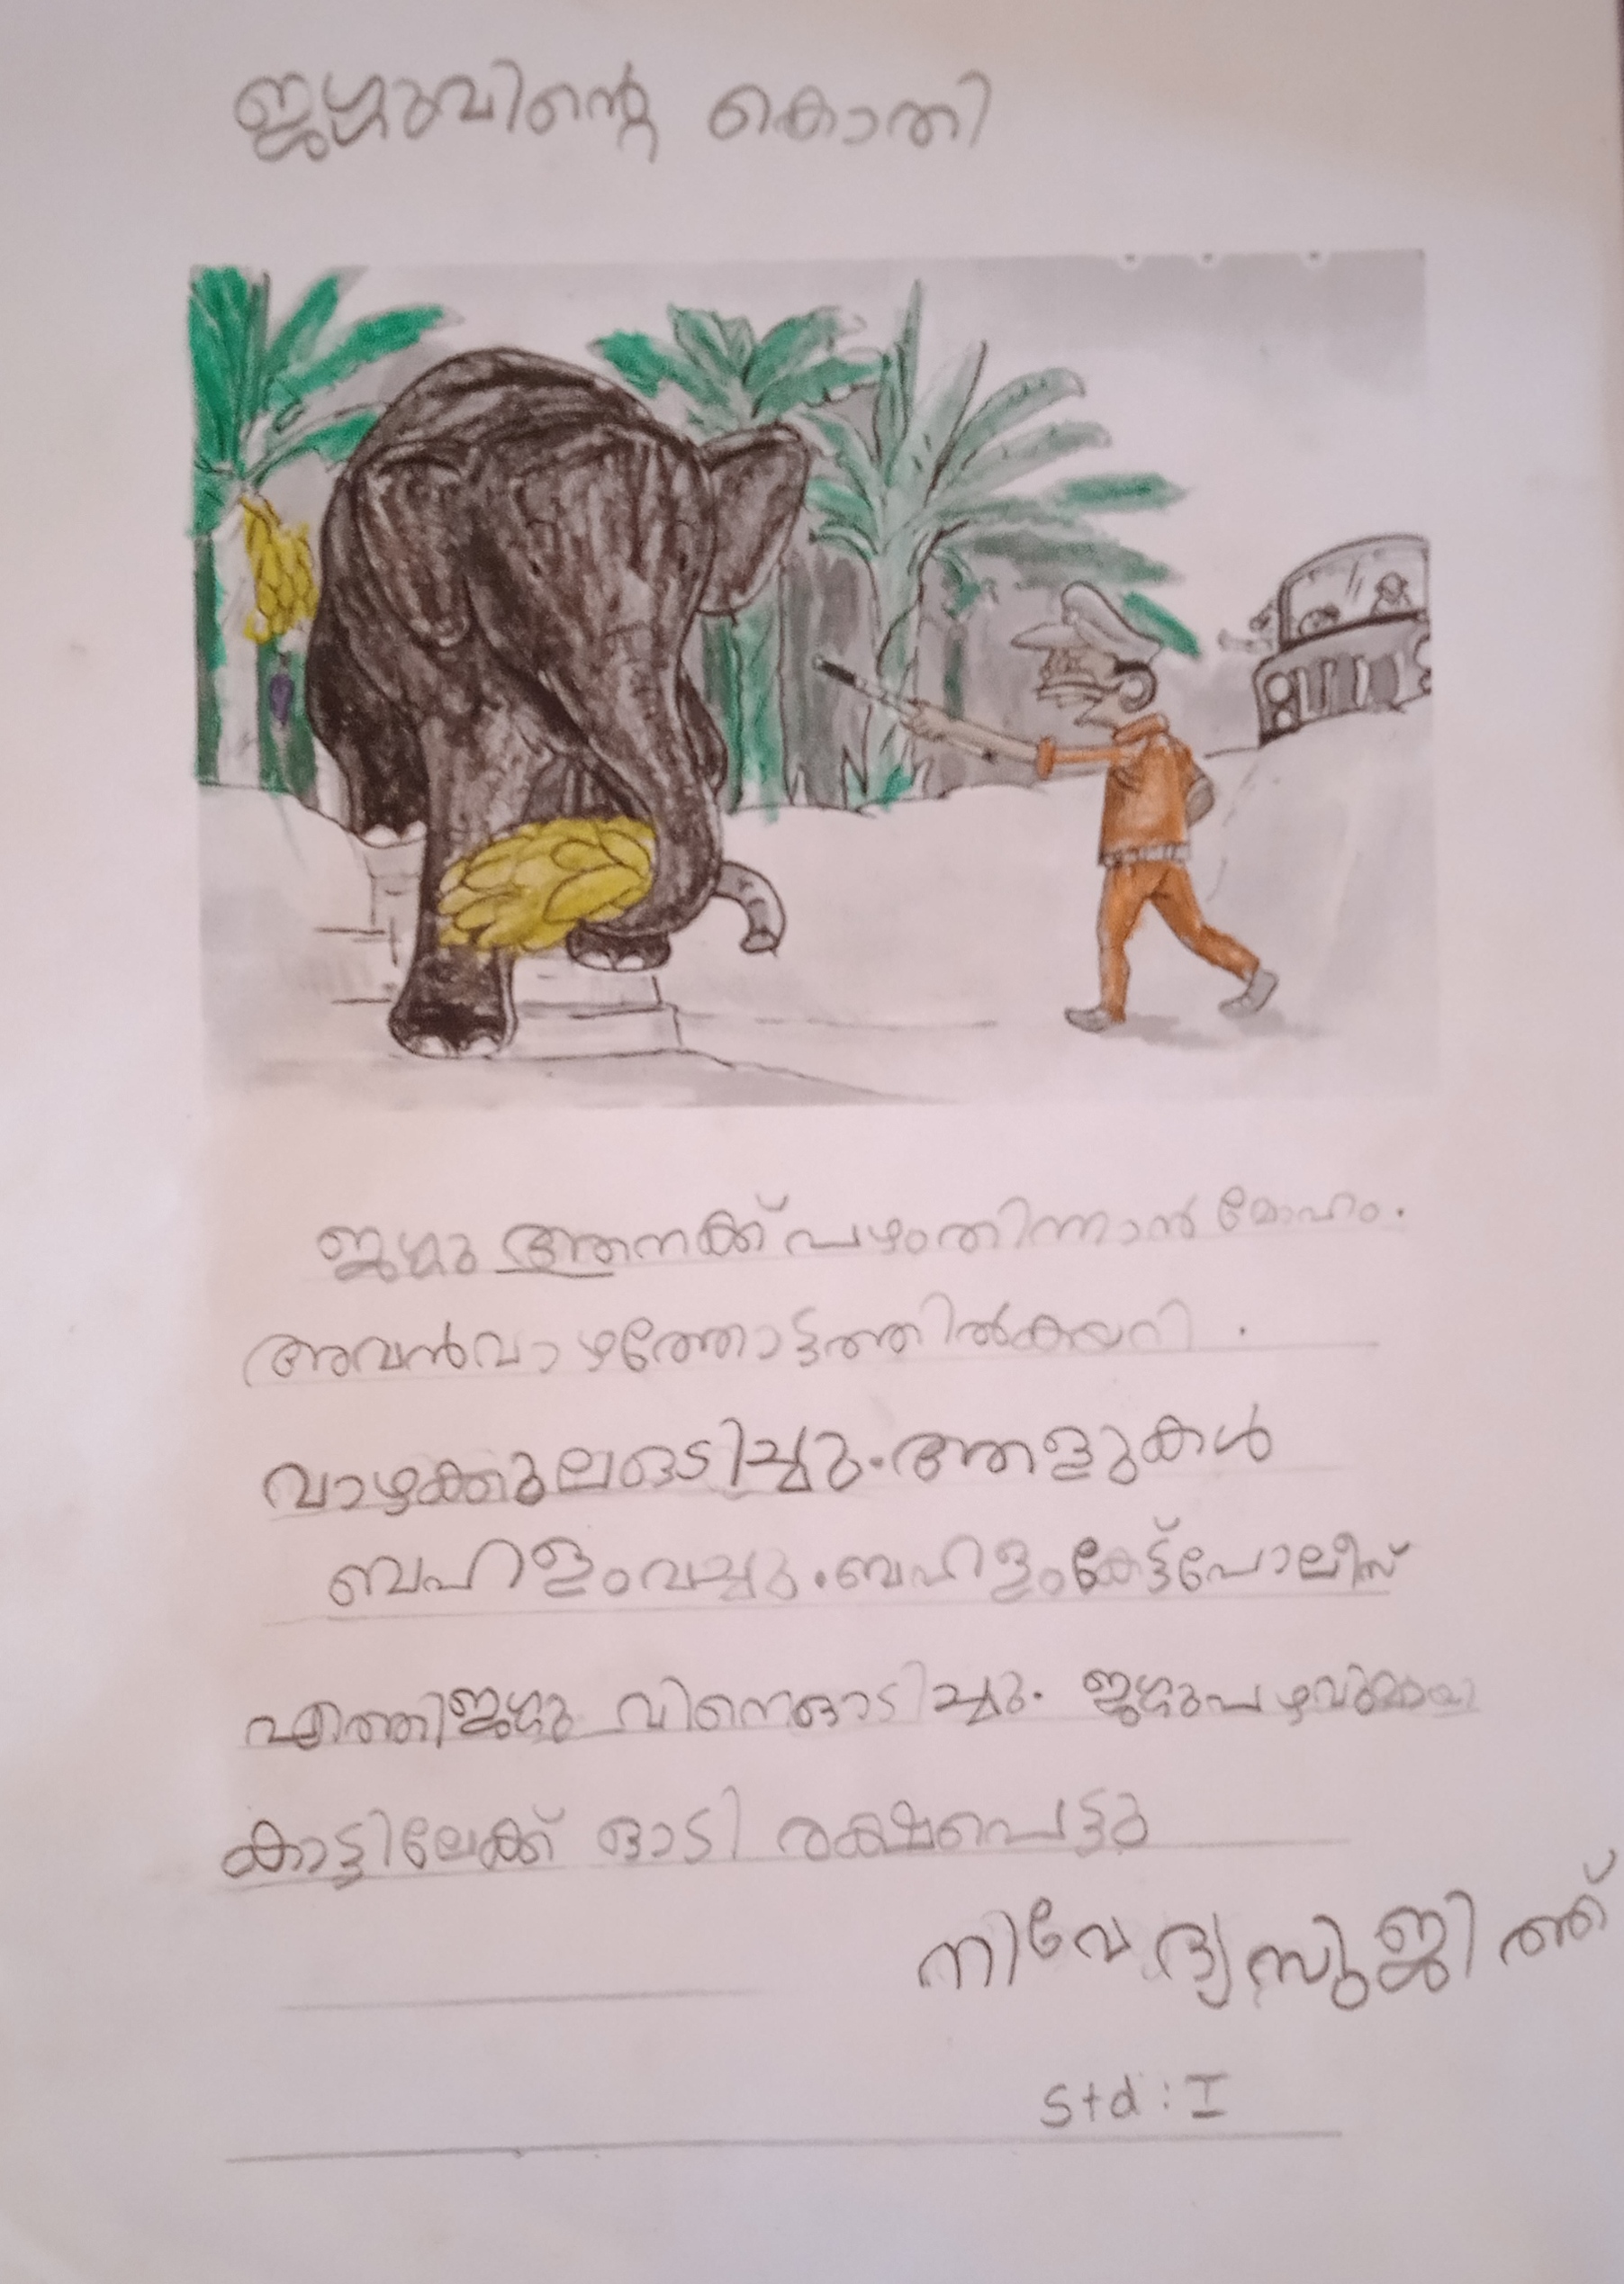 ജഗ്ഗുവിന്റെ കൊതി
ജഗ്ഗു ആനക്ക് പഴംതിന്നാൻ മോഹം.
അവൻവാഴത്തോട്ടത്തിൽകയറി.
വാഴക്കുലഒടിച്ചു.ആളുകൾ
ബഹളംവച്ചു.ബഹളംകേട്ട്പോലീസ്
എത്തിജഗ്ഗു വിനെഓടിച്ചു. ജഗ്ഗുപഴവുമായി
കാട്ടിലേക്ക് ഓടി രക്ഷപെട്ടു
നിവേദ്യസുജിത്ത്
Std : I